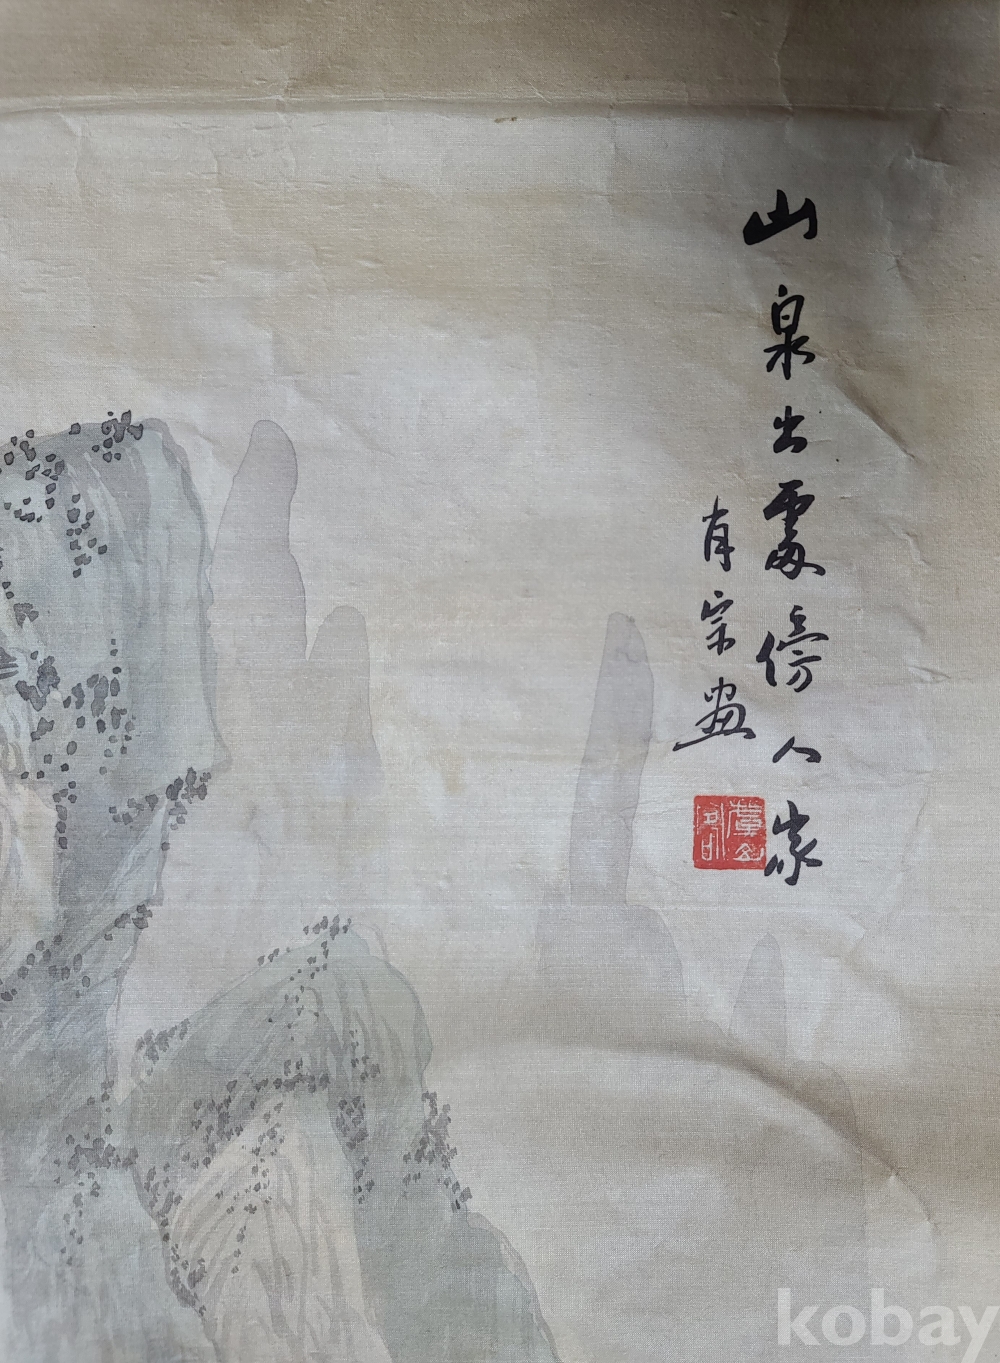 山泉出處傍人家
肖宗画
kobay